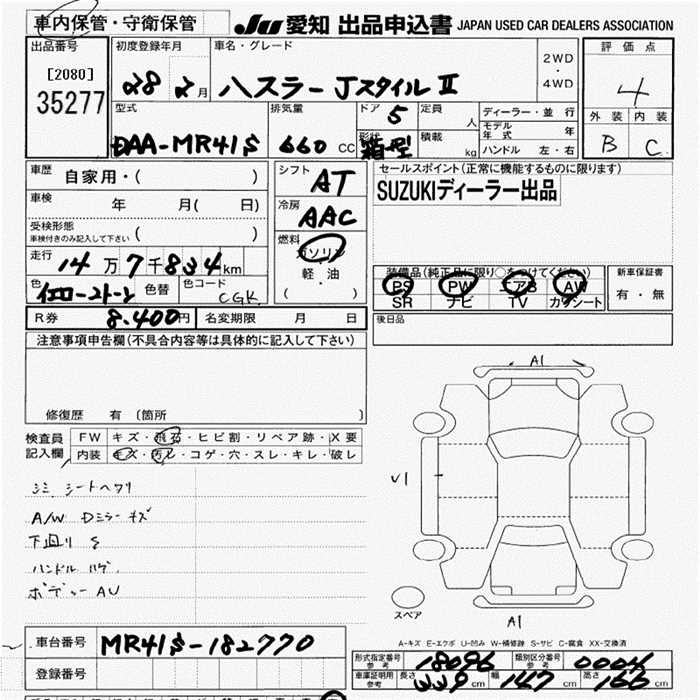 車内保管・守衛保管
JU 愛知 出品申込書 JAPAN USED CAR DEALERS ASSOCIATION
出品番号
[2080]
35277
初度登録年月
28 2月
車名・グレード
ハスラー JスタイルⅡ
2WD
・
4WD
評価点
4
外装 内装
B C
型式
DAA-MR41S
排気量
660 CC
ドア 5
形状 箱型
定員 人
積載 kg
ディーラー・並行
モデル年式 年
ハンドル 左・右
車歴 自家用・( )
車検 年 月( 日)
受検形態
車検付きのみ記入して下さい ( )
走行
14万7千834km
色 イエローストーン 色替 色コード CGK
シフト AT
冷房 AAC
燃料
ガソリン
軽・油
( )
セールスポイント(正常に機能するものに限ります)
SUZUKIディーラー出品
装備品(純正品に限り○をつけてください)
PS PW エアB AW
SR ナビ TV カワシート
新車保証書
有・無
R券 8,400円 名変期限 月 日
後日品
注意事項申告欄(不具合内容等は具体的に記入して下さい)
修復歴 有 (箇所 )
検査員記入欄
FW キズ・飛石・ヒビ割・リペア跡・X要
内装 キズ・汚レ・コゲ・穴・スレ・キレ・破レ
シミ シートヘタリ
A/W Dミラーキズ
下廻り S
ハンドル ハゲ
ボディー AU
A1
U1
A1
スペア
A-キズ E-エクボ U-凹み W-補修跡 S-サビ C-腐食 XX-交換済
車台番号 MR41S-182770
登録番号
形式指定番号 参考 18096 類別区分番号 参考 0004
車庫証明用 参考 長さ 339cm 幅 147cm 高さ 166cm